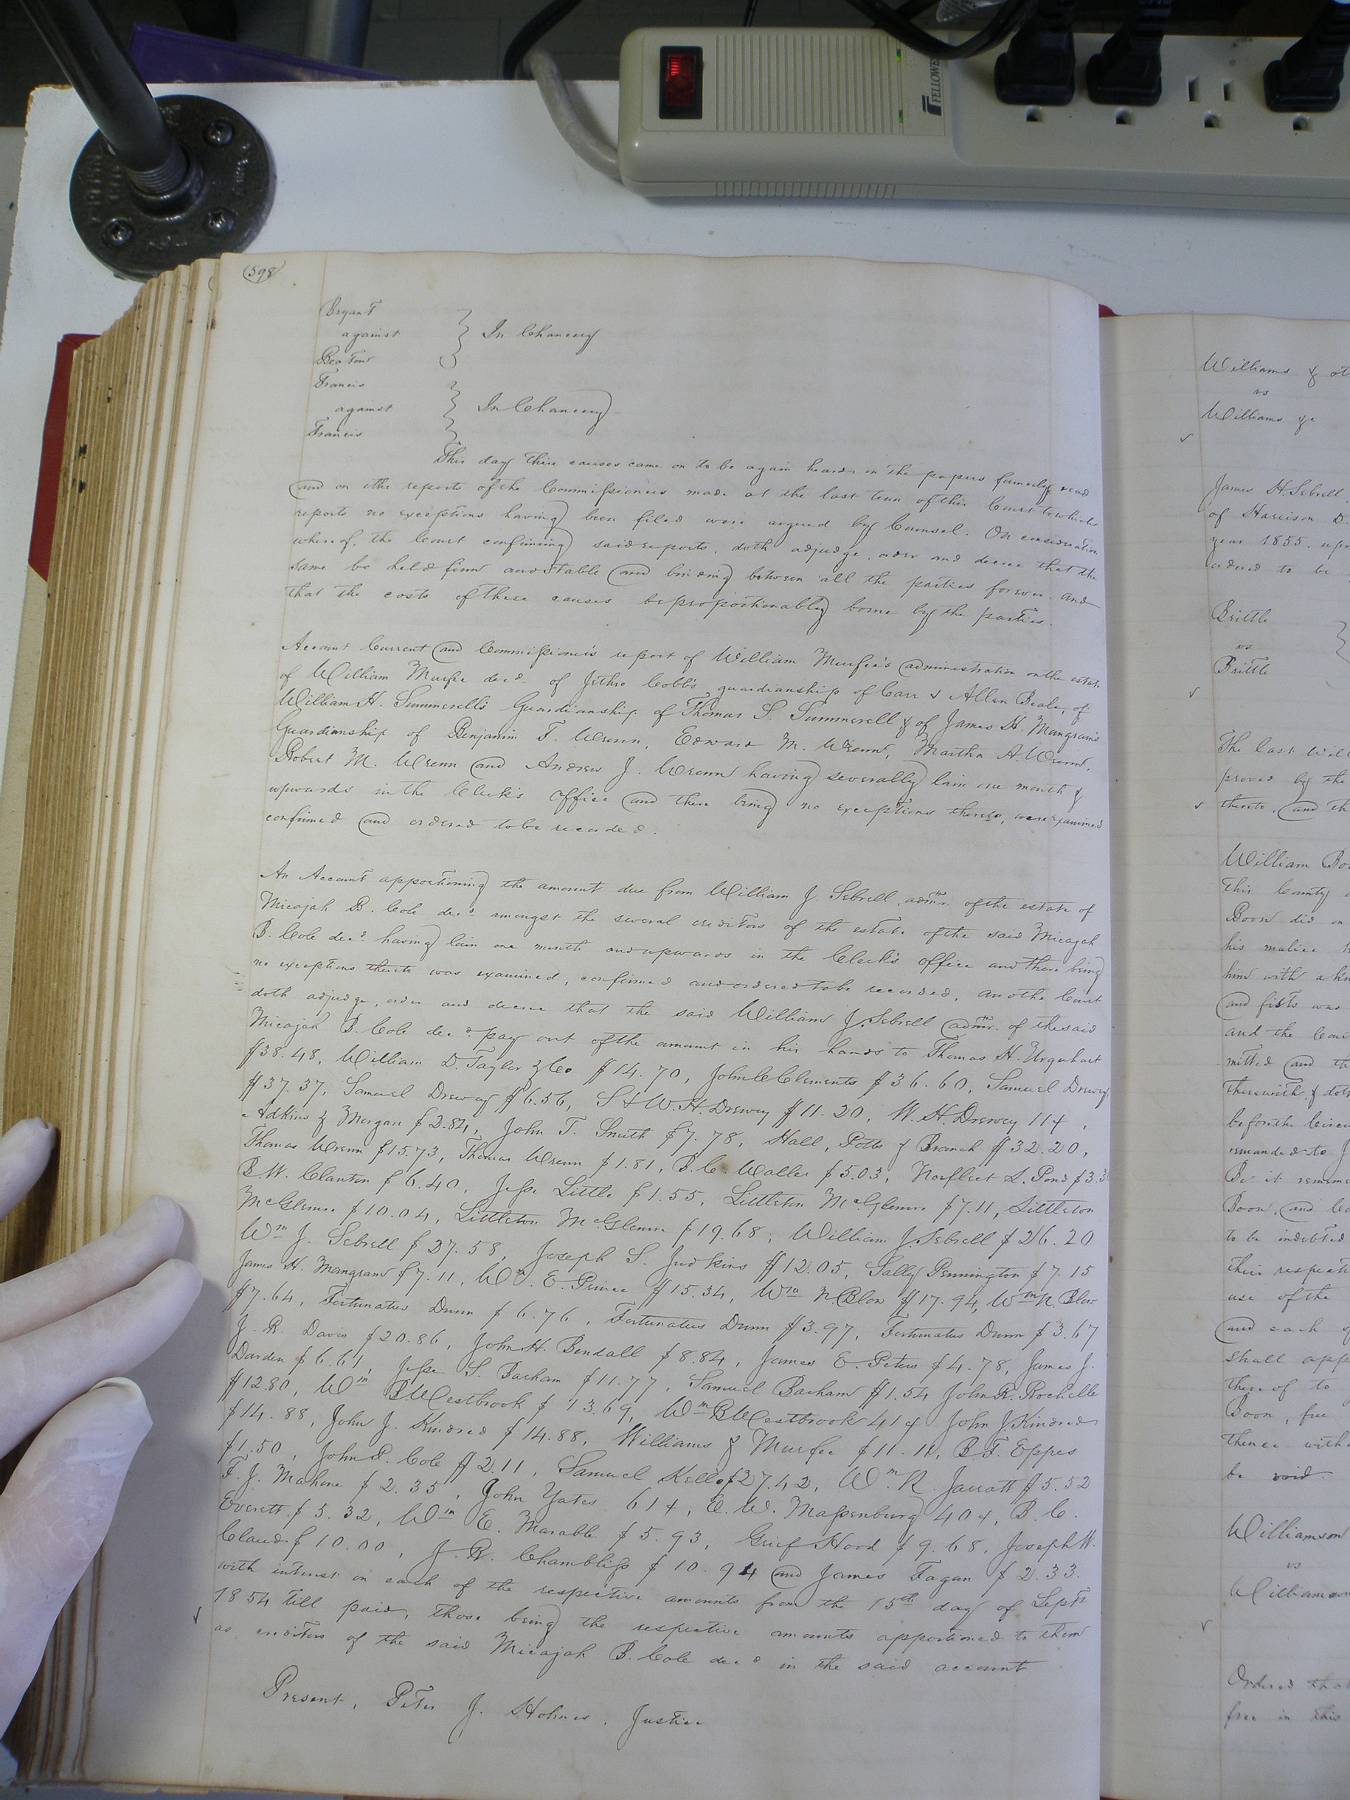 FELLOWES
598
Bryant
against } In Chancery
Beaton
Francis
against } In Chancery
Francis
This day these causes came on to be again heard on the papers formerly read
and on the reports of the Commissioners made at the last term of this Court to which
reports no exceptions having been filed were argued by Counsel. On consideration
whereof, the Court confirming said reports, doth adjudge, order and decree that the
same be held firm and stable and binding between all the parties forever and
that the costs of these causes be proportionably borne by the parties.
Account Current and Commissioner's report of William Murfee's administration on the estate
of William Murfee decd. of Jethro Cobb's guardianship of Carr & Allen Beale, of
William H. Summerell's Guardianship of Thomas S. Summerell & of James H. Mangram's
Guardianship of Benjamin F. Wrenn, Edward M. Wrenn, Martha A. Wrenn,
Robert M. Wrenn and Andrew J. Wrenn having severally lain one month &
upwards in the Clerk's office and there being no exceptions thereto, were examined
confirmed and ordered to be recorded.
An Account apportioning the amount due from William J. Sebrell admr. of the estate of
Micajah B. Cole decd. amongst the several creditors of the estate of the said Micajah
B. Cole decd. having lain one month and upwards in the Clerk's office and there being
no exceptions thereto was examined, confirmed and ordered to be recorded, and the Court
doth adjudge, order and decree that the said William J. Sebrell admr. of the said
Micajah B. Cole decd. pay out of the amount in his hands to Thomas H. Urquhart
$38.48, William D. Taylor & Co $14.70, John C Clements $36.60, Samuel Drewry
$37.37, Samuel Drewry $6.56, S & W. H. Drewry $11.20, W. H. Drewry 11¢,
Adkins & Morgan $2.84, John T. Smith $7.78, Hall, Potts & Branch $32.20,
Thomas Wrenn $15.73, Thomas Wrenn $1.81, B. C. Waller $5.03, Norfleet S. Pond $3.3
B. W. Clanton $6.40, Jesse Little $1.55, Littleton McGlenne $7.11, Littleton
McGlenne $10.04, Littleton McGlenne $19.68, William J. Sebrell $26.20
Wm J. Sebrell $27.58, Joseph S. Judkins $12.05, Sally Pennington $7.15
James H. Mangram $7.11, Wm. E. Prince $15.34, Wm N Blow $17.94, Wm N. Blow
$7.64, Fortunatus Dunn $6.76, Fortunatus Dunn $3.97, Fortunatus Dunn $3.67
J. R. Davis $20.86, John H. Bendall $8.84, James E. Peters $4.78, James J.
Darden $6.61, Jesse S. Barham $11.77, Samuel Barham $1.54 John R. Rochelle
$12.80, Wm B. Westbrook $13.69, Wm B. Westbrook 41¢ John J. Kindred
$14.88, John J. Kindred $14.88, Williams & Murfee $11.11, B. F. Eppes
$1.50, John R. Cole $2.11, Samuel Kello $27.42, Wm. R. Jarratt $5.52
F. J. Mahone $2.35, John Yates 61¢, E. W. Massenburg 40¢, B. C.
Everett $5.32, Wm E. Marable $5.93, Grief Hood $9.68, Joseph W.
Claud $10.00, J. R. Chambliss $10.94 and James Fagan $2.33.
with interest on each of the respective amounts from the 15th day of Septr
1854 till paid, those being the respective amounts apportioned to them
as creditors of the said Micajah B. Cole decd in the said account
Present, Peter J. Holmes, Justice
Williams & ot
vs
Williams &
James H. Sebrell
of Harrison D.
year 1855. upo
ordered to be
Brittle
vs
Brittle
The last Will
proved by the
thereto, and th
William Boo
this County
Boon did on
his malice
him with a kn
and fists was
and the Cou
mitted and th
therewith & dot
before the Circu
remanded to J
Be it remem
Boon, and le
to be indebted
their respecti
use of the
and each of
shall appe
thereof to
Boon, free
thence with
be void
Williamson
vs
Williamson
Ordered that
free in this